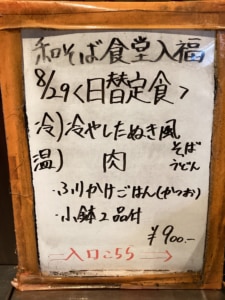 和そば食堂入福
8/29〈日替定食〉
冷)冷やしたぬき風
温) 肉 そばうどん
・ふりかけごはん(かつお)
・小鉢2品付
¥900-
入口こちら→